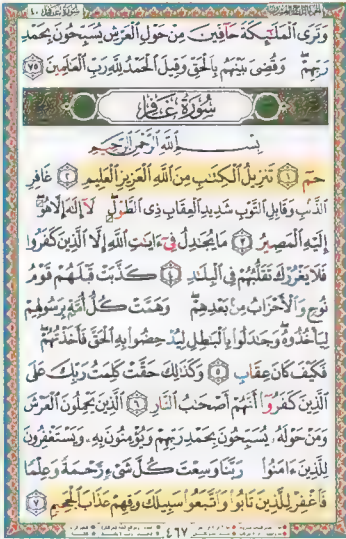 سورة غافر ٤٠
وَتَرَى ٱلْمَلَٰٓئِكَةَ حَآفِّينَ مِنْ حَوْلِ ٱلْعَرْشِ يُسَبِّحُونَ بِحَمْدِ
رَبِّهِمْ ۖ وَقُضِىَ بَيْنَهُم بِٱلْحَقِّ وَقِيلَ ٱلْحَمْدُ لِلَّهِ رَبِّ ٱلْعَٰلَمِينَ ٧٥
سُورَةُ غَافِرٍ
بِسْمِ ٱللَّهِ ٱلرَّحْمَٰنِ ٱلرَّحِيمِ
حمٓ ١ تَنزِيلُ ٱلْكِتَٰبِ مِنَ ٱللَّهِ ٱلْعَزِيزِ ٱلْعَلِيمِ ٢ غَافِرِ
ٱلذَّنۢبِ وَقَابِلِ ٱلتَّوْبِ شَدِيدِ ٱلْعِقَابِ ذِى ٱلطَّوْلِ ۖ لَآ إِلَٰهَ إِلَّا هُوَ ۖ
إِلَيْهِ ٱلْمَصِيرُ ٣ مَا يُجَٰدِلُ فِىٓ ءَايَٰتِ ٱللَّهِ إِلَّا ٱلَّذِينَ كَفَرُوا۟
فَلَا يَغْرُرْكَ تَقَلُّبُهُمْ فِى ٱلْبِلَٰدِ ٤ كَذَّبَتْ قَبْلَهُمْ قَوْمُ
نُوحٍ وَٱلْأَحْزَابُ مِنۢ بَعْدِهِمْ ۖ وَهَمَّتْ كُلُّ أُمَّةٍۭ بِرَسُولِهِمْ
لِيَأْخُذُوهُ ۖ وَجَٰدَلُوا۟ بِٱلْبَٰطِلِ لِيُدْحِضُوا۟ بِهِ ٱلْحَقَّ فَأَخَذْتُهُمْ ۖ
فَكَيْفَ كَانَ عِقَابِ ٥ وَكَذَٰلِكَ حَقَّتْ كَلِمَتُ رَبِّكَ عَلَى
ٱلَّذِينَ كَفَرُوٓا۟ أَنَّهُمْ أَصْحَٰبُ ٱلنَّارِ ٦ ٱلَّذِينَ يَحْمِلُونَ ٱلْعَرْشَ
وَمَنْ حَوْلَهُۥ يُسَبِّحُونَ بِحَمْدِ رَبِّهِمْ وَيُؤْمِنُونَ بِهِۦ وَيَسْتَغْفِرُونَ
لِلَّذِينَ ءَامَنُوا۟ رَبَّنَا وَسِعْتَ كُلَّ شَىْءٍ رَّحْمَةً وَعِلْمًا
فَٱغْفِرْ لِلَّذِينَ تَابُوا۟ وَٱتَّبَعُوا۟ سَبِيلَكَ وَقِهِمْ عَذَابَ ٱلْجَحِيمِ ٧
٤٦٧